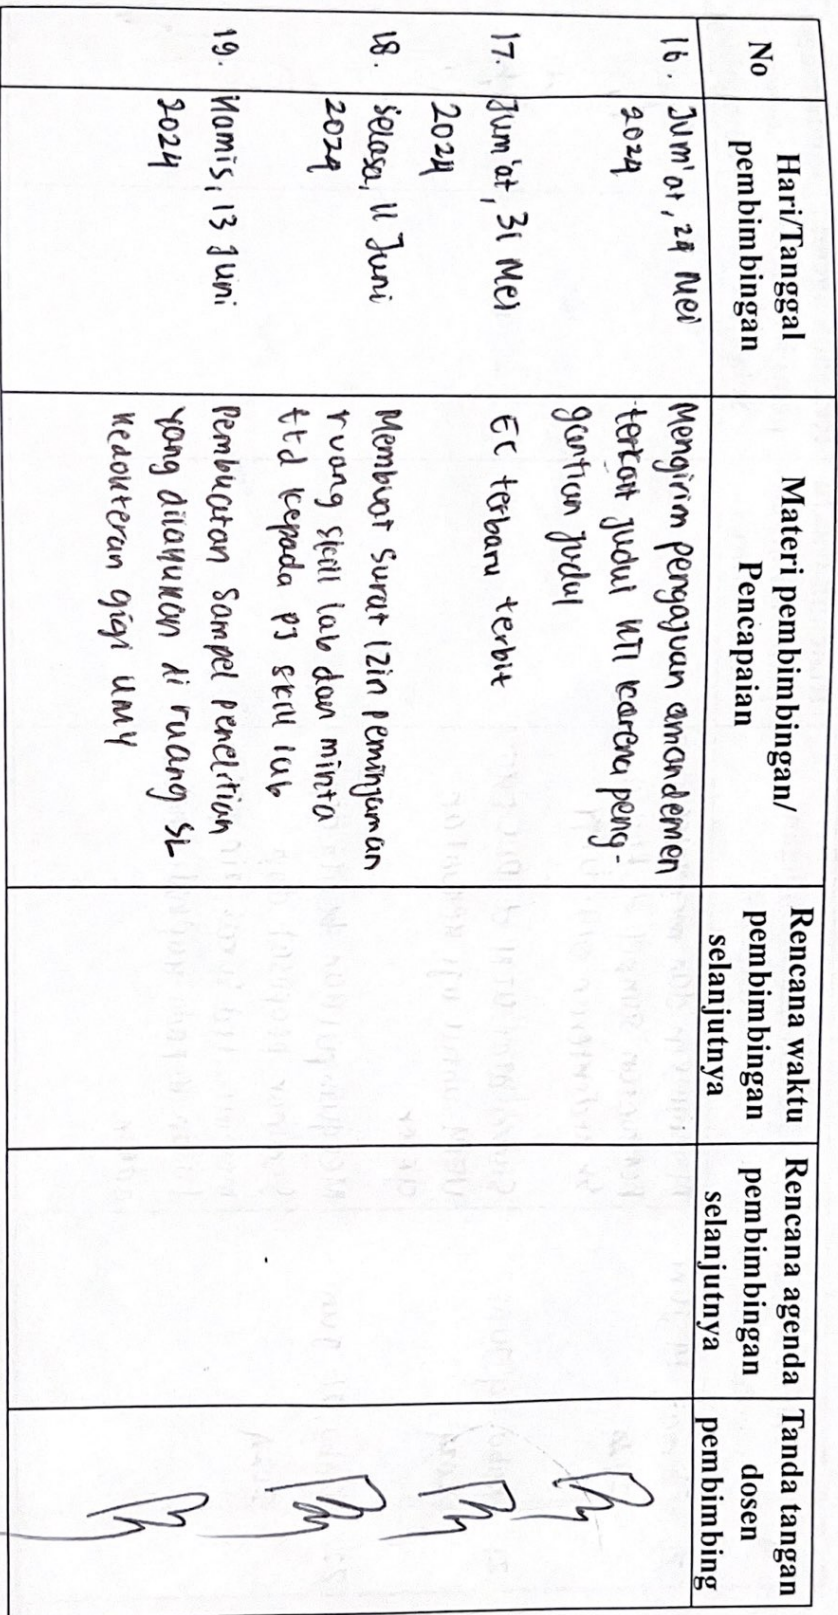 No
Hari/Tanggal
pembimbingan
Materi pembimbingan/
Pencapaian
Rencana waktu
pembimbingan
selanjutnya
Rencana agenda
pembimbingan
selanjutnya
Tanda tangan
dosen
pembimbing
16.
Jum'at, 24 Mei
2024
Mengirim pengajuan amandemen
terkait judul KTI karena peng-
gantian judul
17.
Jum'at, 31 Mei
2024
EC terbaru terbit
18.
Selasa, 11 Juni
2024
Membuat surat izin peminjaman
ruang skill lab dan minta
ttd kepada PJ skill lab
19.
Kamis, 13 Juni
2024
Pembuatan sampel penelitian
yang dilakukan di ruang SL
kedokteran gigi UMY